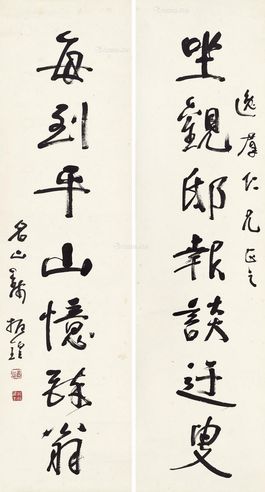 坐觀邸報談迂叟
逸羣仁兄正之
每到平山憶醉翁
名山錢振鍠